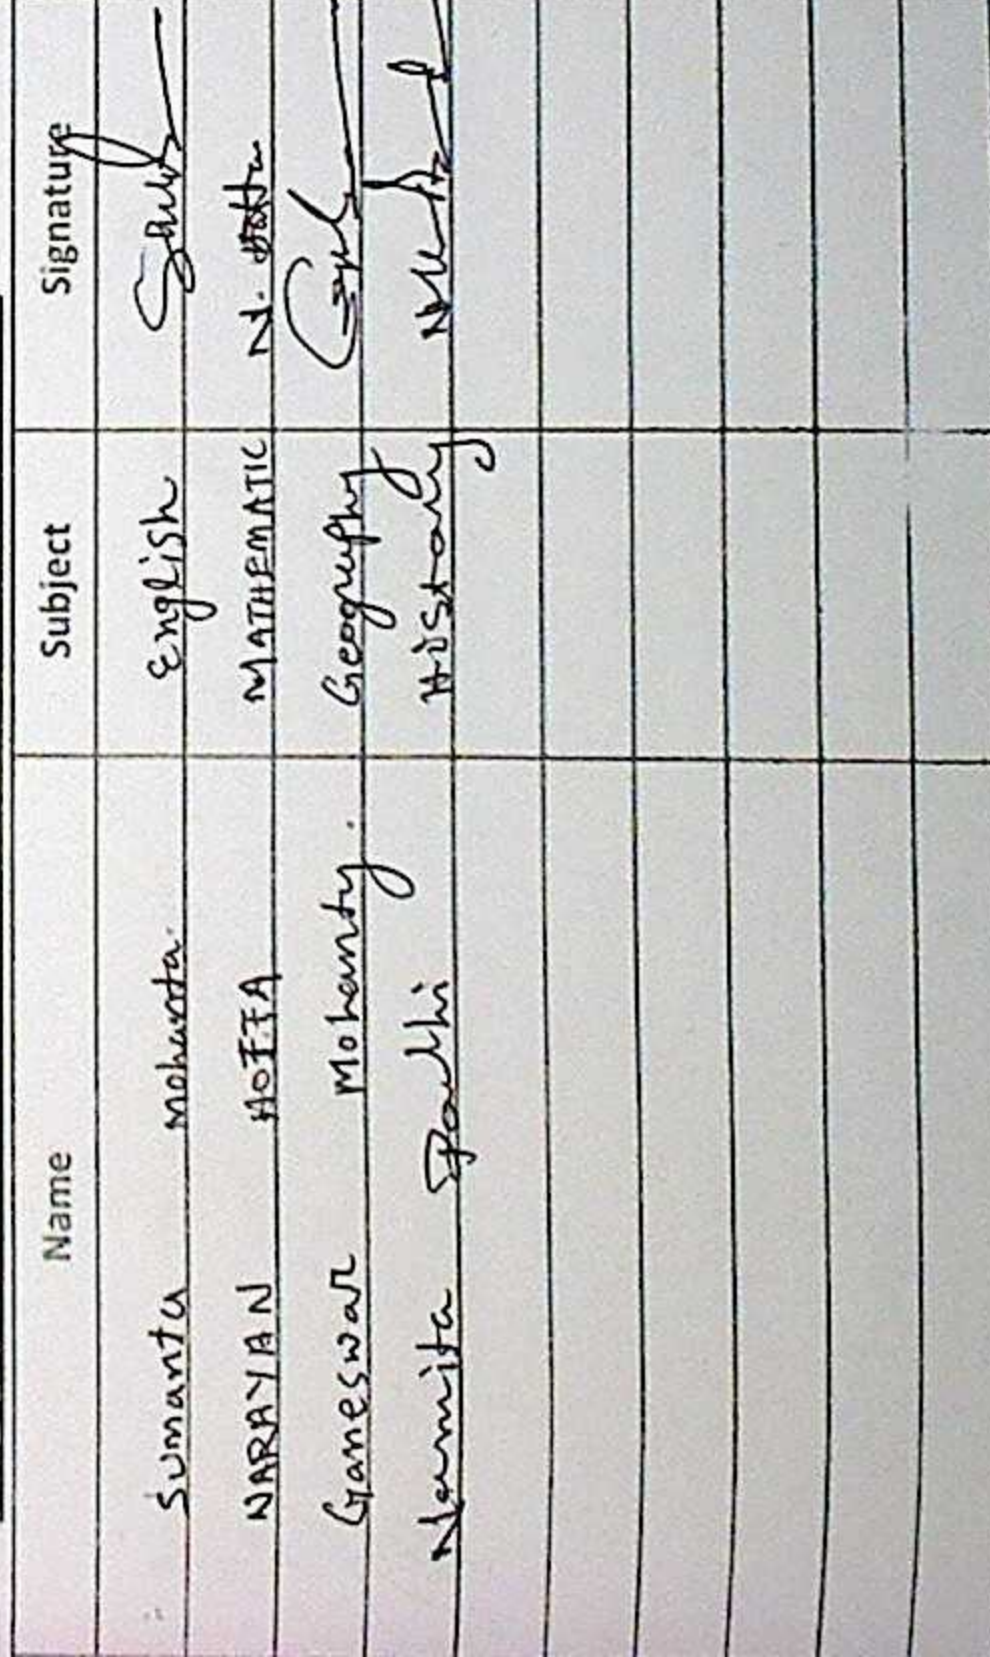 Name Subject Signature
Sumanta Mohanta. English
NARAYAN HOTTA MATHEMATIC N. Hotta
Ganeswar Mohanty. Geography
Namita Padhi History